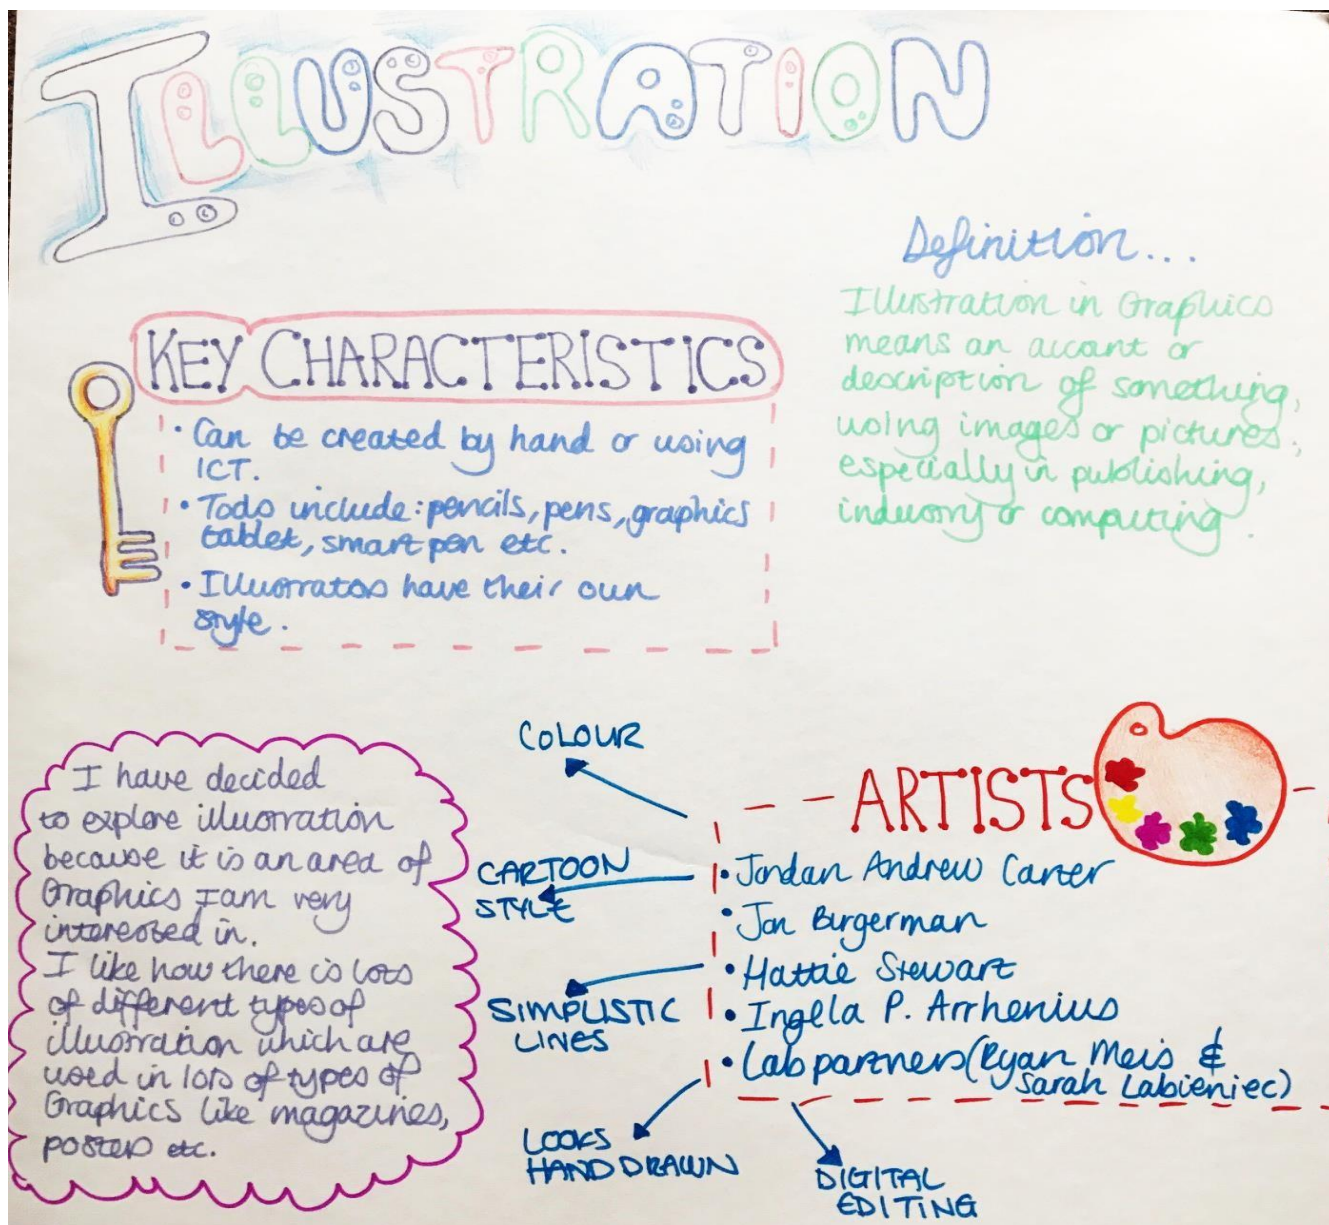 ILLUSTRATION
Definition...
Illustration in Graphics
means an accant or
description of something,
using images or pictures,
especially in publishing,
industry or computing.
KEY CHARACTERISTICS
• Can be created by hand or using
ICT.
• Tools include: pencils, pens, graphics
tablet, smart pen etc.
• Illustrators have their own
style.
I have decided
to explore illustration
because it is an area of
Graphics I am very
interested in.
I like how there is lots
of different types of
illustration which are
used in lots of types of
Graphics like magazines,
posters etc.
COLOUR
CARTOON
STYLE
SIMPLISTIC
LINES
LOOKS
HAND DRAWN
DIGITAL
EDITING
ARTISTS
• Jordan Andrew Carter
• Jon Burgerman
• Hattie Stewart
• Ingela P. Arrhenius
• Lab partners (Ryan Meis &
Sarah Labieniec)